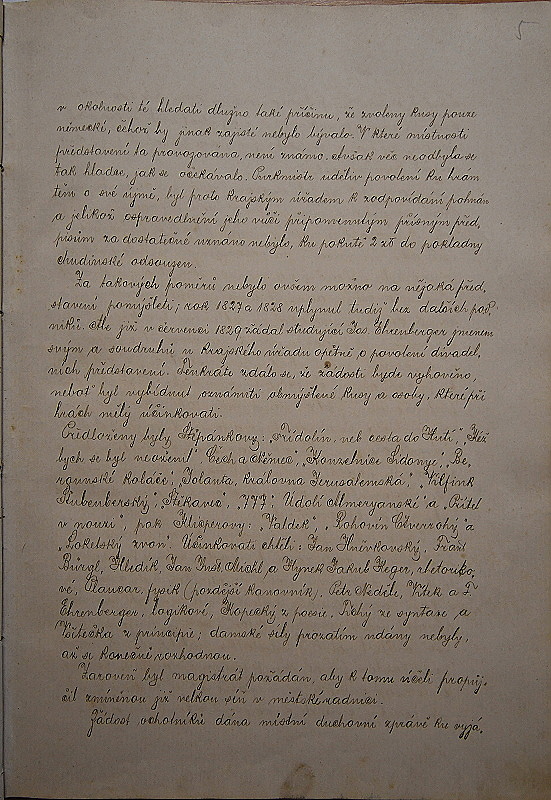 5
v okolnosti té hledati dlužno také příčinu, že zvoleny kusy pouze
německé, čehož by jinak zajisté nebylo bývalo. V které místnosti
představení ta provozována, není známo. Avšak věc neodbyla se
tak hladce, jak se očekávalo. Purkmistr uděliv povolení ku hram
těm o své ujmě, byl proto krajským úřadem k zodpovídání pohnán
a jelikož ospravedlnění jeho vůči připomenutým přísným před,
pisům za dostatečné uznáno nebylo, ku pokutě 2 zł do pokladny
chudinské odsouzen.
Za takových poměrů nebylo ovšem možno na nějaká před,
stavení pomýšleti; rok 1827 a 1828 uplynul tudíž bez dalších pod,
niků. Ale již v červenci 1829 žádal studující Jos. Ehrenberger jmenem
svým a soudruhů u krajského úřadu opětně o povolení divadel,
ních představení. Tenkráte zdálo se, že žádosti bude vyhověno,
neboť byl vybídnut oznámiti obmýšlené kusy a osoby, které při
hrách měly účinkovati.
Předloženy byly Štěpánkovy: „Fridolín neb cesta do Hutí", „Kéž
bych se byl neoženil" „Čech a Němec", „Konzelnice Sidonye", „Be,
rounské koláče", „Jolanta, královna Jerusalemská", „Vilfink
Stubenberský", „Štěkavec", „777", Údolí Almeryanské" a „Přítel
v nouzi", pak Klicperovy: „Valdek", „Rohovín Čtverrohý" a
„Loketský zvon". Účinkovati chtěli: Jan Hněvkovský,
Bürgl, Hledík, Jan Hynek Jakub Heger, rhetoriko,
vé, Plaucar, fysik (pozdější kanovník). Petr Neděle, Vítek a F.
Ehrenberger, logikové, Kopecký z poesie. Tichý ze syntaxe a
Všetečka z principie; damské síly prozatím udány nebyly,
až se konečně rozhodnou.
Zároveň byl magistrát požádán, aby k tomu účeli propůj,
čil zmíněnou již velkou síň v městské radnici.
Žádost ochotníků dána místní duchovní zprávě ku vyjá,